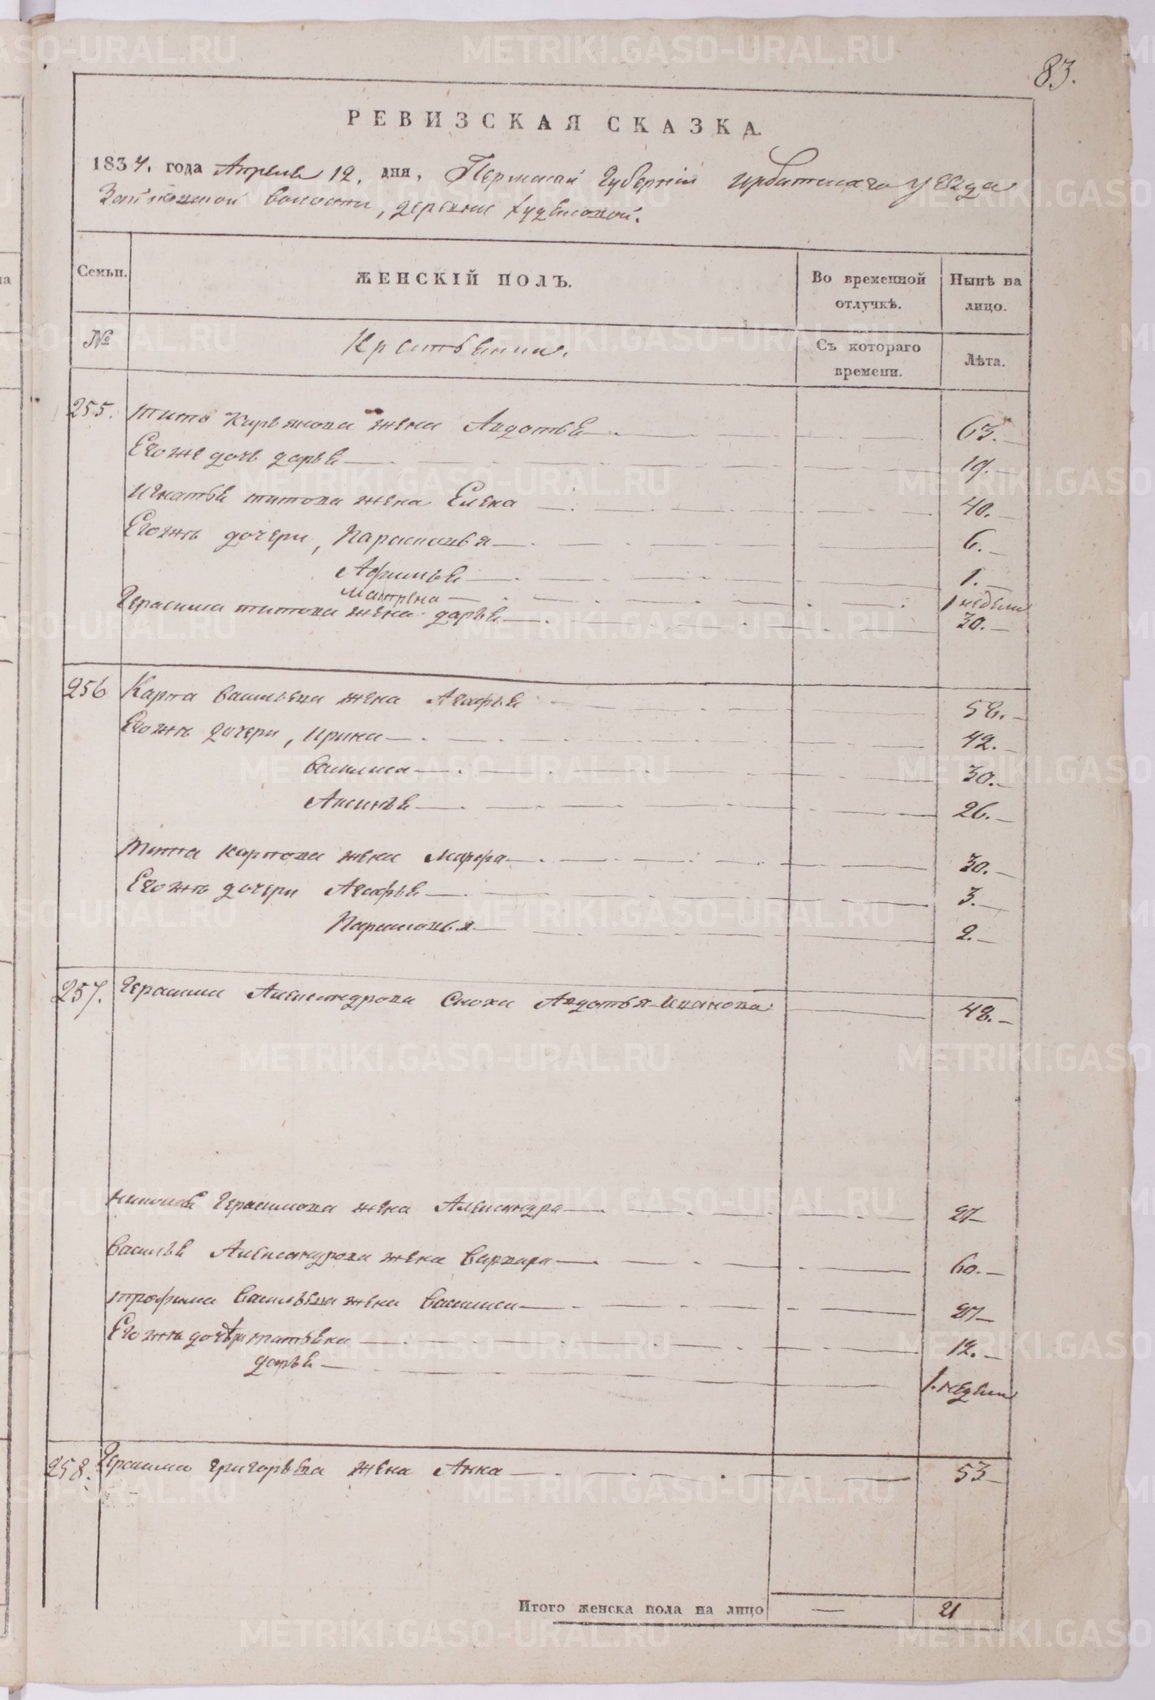 83.
РЕВИЗСКАЯ СКАЗКА.
1834. года Апреля 12. дня, Пермской Губернии Ирбитскаго уезда
Зайковской волости, деревни
Семьи.
ЖЕНСКІЙ ПОЛЪ.
Во временной отлучкѣ.
Нынѣ на лицо.
№
Крестьянки.
Съ котораго времени.
Лѣта.
255. Тита Карьякова жена Авдотья 63.
Его же дочь дарья 19.
Игнатья титова жена Елена 40.
Его жъ дочери, Парасковья 6.
Афимья 1.
Матрена 1 недели
Герасима титова жена дарья 30.
256 Карпа васильева жена Агафья 58.
Его жъ дочери, Ирина 42.
василиса 30.
Аксинья 26.
Тита карпова жена Марфа 30.
Его жъ дочери Агафья 3.
Парасковья 2.
257. Герасима Александрова Сноха Авдотья Иванова 48.
Герасимова жена Александра 27
Василья Александрова жена варвара 60.
трофима васильева жена василиса 27
Его жъ дочери татьяна 12.
дарья 1. недели
258. Герасима григорьева жена Анна 53
Итого женска пола на лицо — 21
METRIKI.GASO-URAL.RU